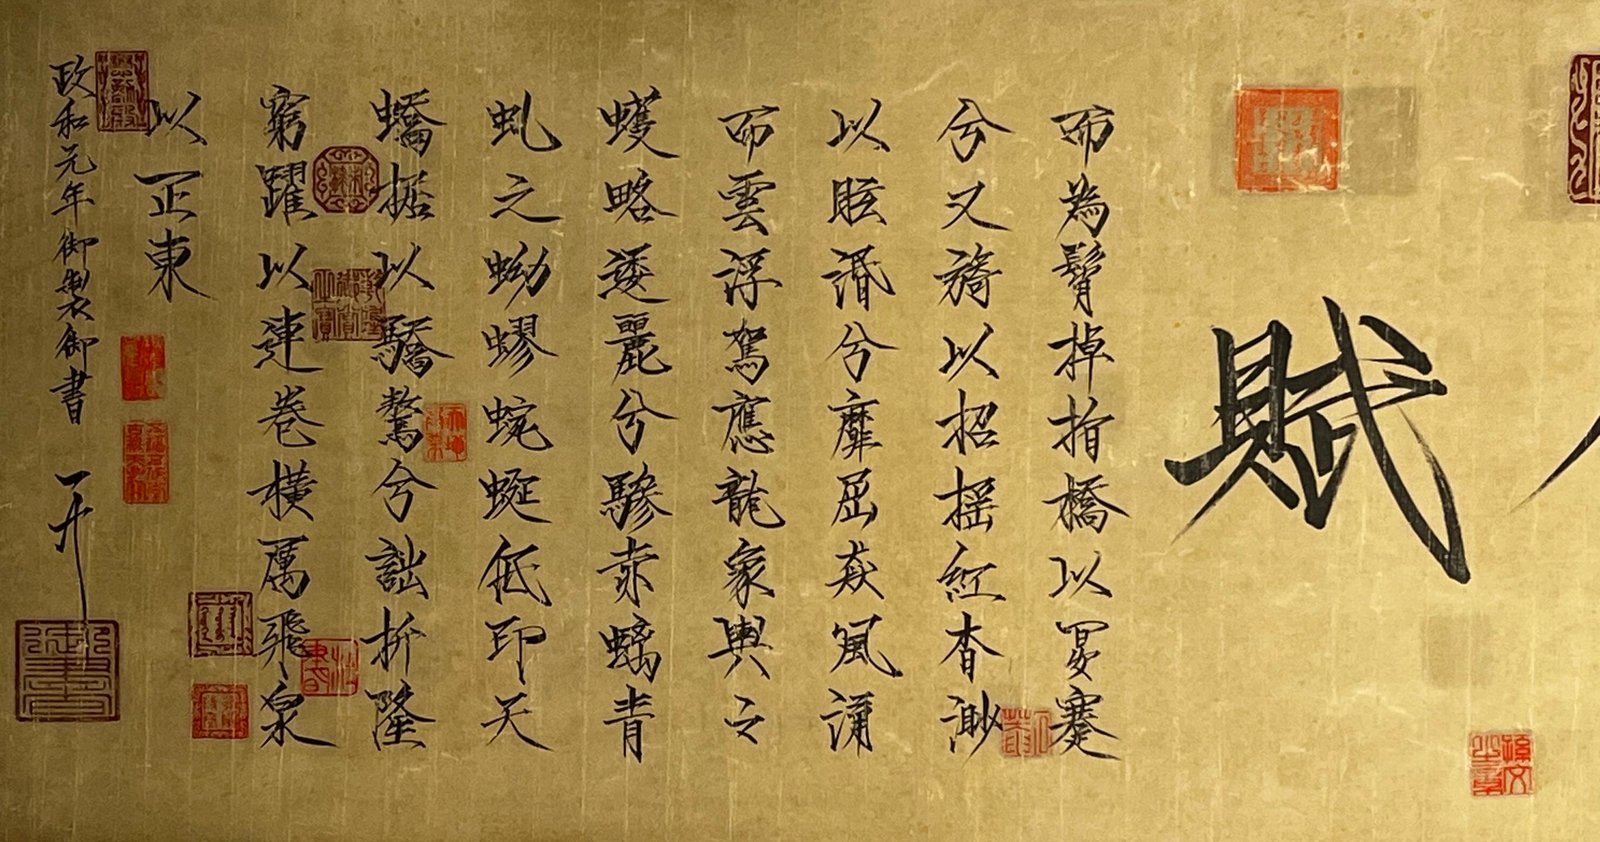 賦
而為髾掉指橋以匽蹇
兮又旖以招搖紅杳渺
以眩湣兮靡屈猋風涌
而雲浮駕應龍象輿之
蠖略逶麗兮驂赤螭青
虬之蚴蟉蜿蜒低卬天
蟜据以驕驁兮詘折隆
窮躍以連卷橫厲飛泉
以正東
政和元年御製御書
御書